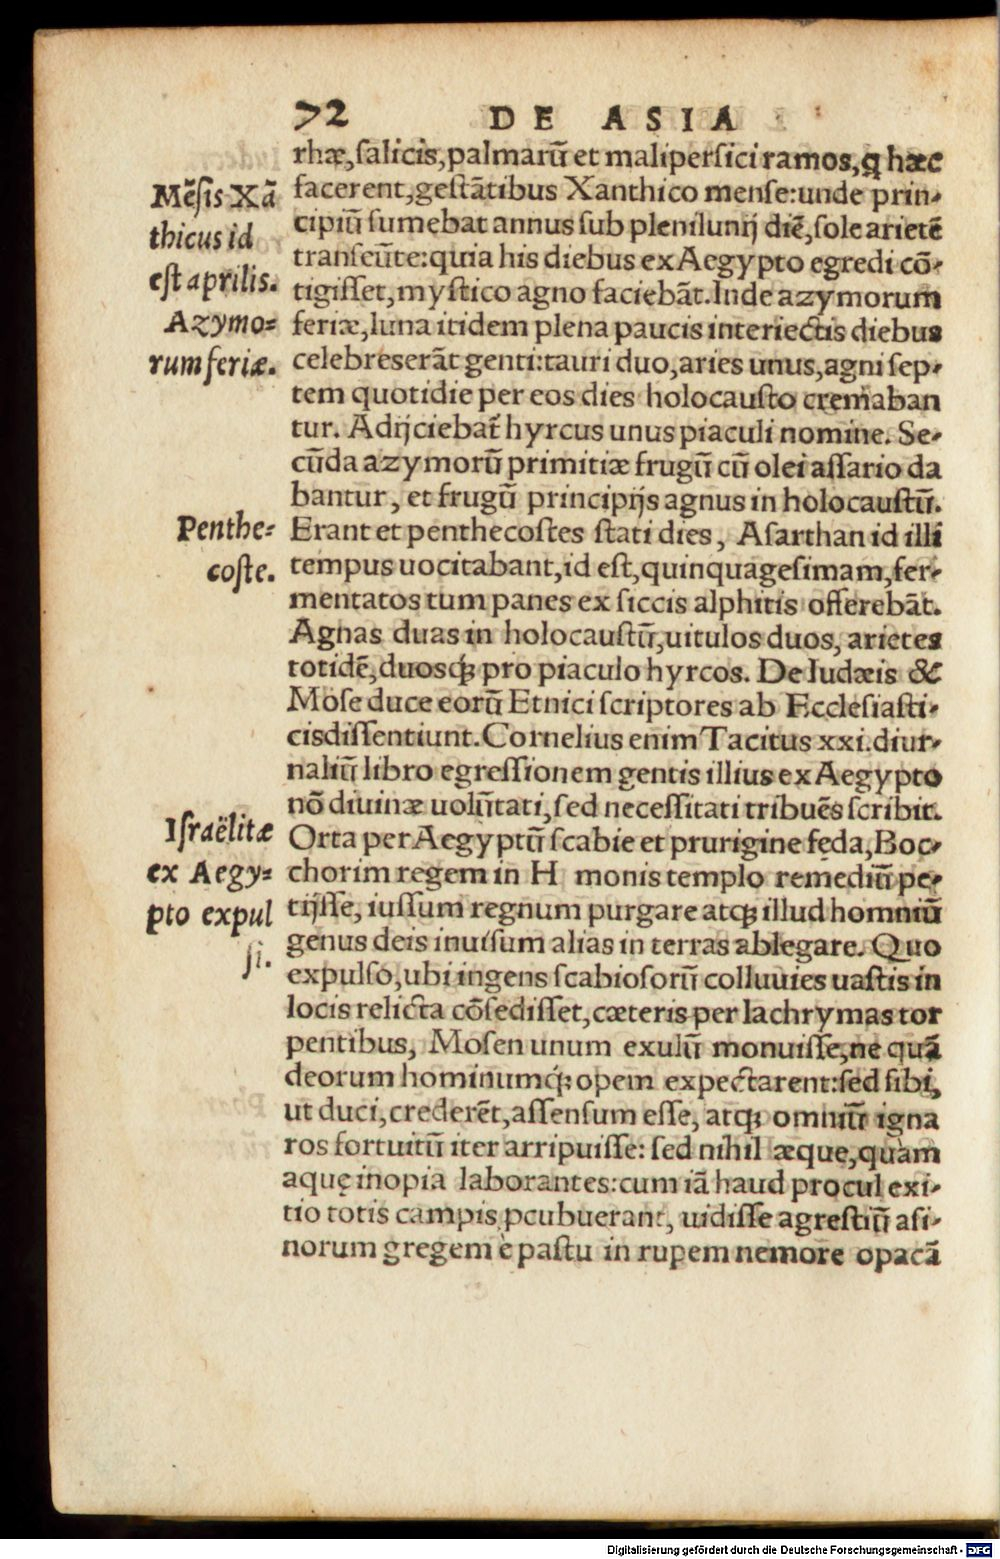 72 DE ASIA
rhæ,ſalicis,palmarū et malipersici ramos,ꝗ hæc
Mēſis Xā
thicus id
eſt aprilis.
facerent,geſtātibus Xanthico mense:unde prin-
cipiū ſumebat annus ſub plenilunij diē,ſole arietē
tranſeūte:quia his diebus ex Aegypto egredi cō-
tigiſſet,myſtico agno faciebāt.Inde azymorum
Azymo=
rum feriæ.
feriæ,luna itidem plena paucis interiectis diebus
celebres erāt genti:tauri duo,aries unus,agni ſep-
tem quotidie per eos dies holocauſto cremaban
tur. Adijciebat̄ hyrcus unus piaculi nomine. Se-
cūda azymorū primitiæ frugū cū olei aſſario da
bantur, et frugū principijs agnus in holocauſtū.
Penthe=
coſte.
Erant et penthecoſtes ſtati dies, Aſarthan id illi
tempus uocitabant,id eſt,quinquageſimam,fer-
mentatos tum panes ex ſiccis alphitis offerebāt.
Agnas duas in holocauſtū,uitulos duos, arietes
totidē,duosq́ꝫ pro piaculo hyrcos. De Iudæis &
Moſe duce eorū Etnici ſcriptores ab Eccleſiaſti-
cis diſſentiunt.Cornelius enim Tacitus xxi.diur-
naliū libro egreſſionem gentis illius ex Aegypto
nō diuinæ uolūtati,ſed neceſſitati tribuēs ſcribit.
Iſraëlitæ
ex Aegy=
pto expul
ſi.
Orta per Aegyptū ſcabie et prurigine fęda,Boc-
chorim regem in H monis templo remediū pe-
tijſſe, iuſſum regnum purgare atqꝫ illud hominū
genus deis inuiſum alias in terras ablegare. Quo
expulſo,ubi ingens ſcabioſorū colluuies uaſtis in
locis relicta cōſediſſet,cæteris per lachrymas tor
pentibus, Moſen unum exulū monuiſſe,ne quā
deorum hominumq́ꝫ opem expectarent:ſed ſibi,
ut duci,crederēt,aſſenſum eſſe, atqꝫ omniū igna
ros fortuitū iter arripuiſſe: ſed nihil æque,quàm
aquę inopia laborantes:cum iā haud procul exi-
tio totis campis ꝓcubuerant, uidiſſe agreſtiū aſi-
norum gregem è paſtu in rupem nemore opacā
Digitalisierung gefördert durch die Deutsche Forschungsgemeinschaft - DFG